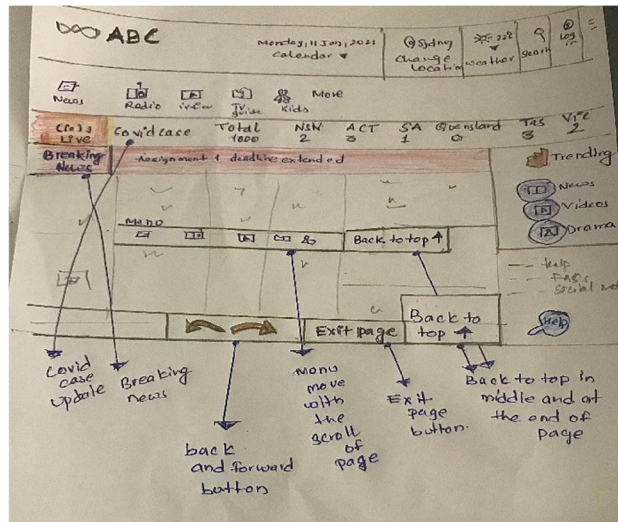 ABC
Monday, 11 Jan, 2021
calendar ▼
Sydney
Change
location
22°
weather
search
Log
in
News
Radio
iview
TV
guide
Kids
More
Live
Covid case
Total
1000
NSW
2
ACT
3
SA
1
Quensland
0
TAS
3
VIC
2
Breaking
News
Assignment 1 deadline extended
Trending
News
Videos
Drama
Menu
Back to top ↑
Help
FAQs
Social
Exit page
Back to
top ↑
Help
Covid
case
update
Breaking
news
back
and forward
button
Menu
move
with
the
scroll
of
page
Exit
page
button.
Back to top in
middle and at
the end of
page